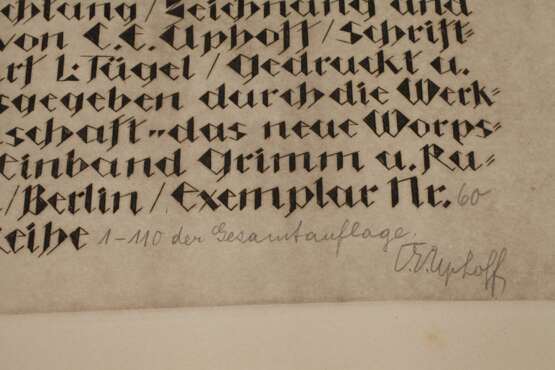 chtung/Zeichnung und
von C.E.Uphoff/Schrift-
L.Tügel/Gedruckt u.
sgegeben durch die Werk-
schaft „das neue Worps-
Einband Grimm u. Ru-
/Berlin/Exemplar Nr. 60
Reihe 1-110 der Gesamtauflage.
C.E.Uphoff